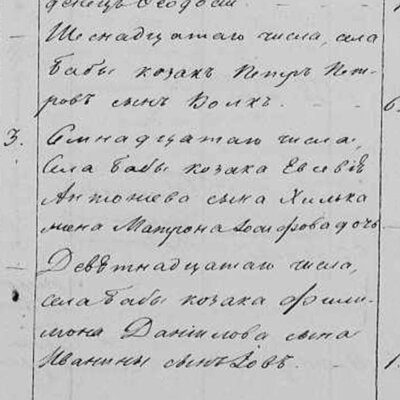 денецъ Ѳеодосій.
Шеснадцатаго числа, села
Бабы козакъ Петръ Пет-
ровъ сынъ Волхъ.
3. Семнадцатаго числа,
Села Бабы козака Евсевія
Антоніева сына Хилька
жена Матрона Іосифова дочь
Девѣтнадцатаго числа,
села Бабы козака Фили-
мона Даніилова сына
Иванины сынъ Іовъ.